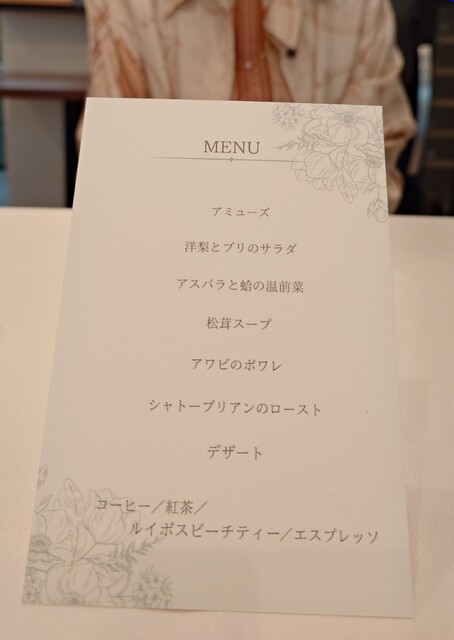 MENU
アミューズ
洋梨とブリのサラダ
アスパラと蛤の温前菜
松茸スープ
アワビのポワレ
シャトーブリアンのロースト
デザート
コーヒー／紅茶／
ルイボスピーチティー／エスプレッソ